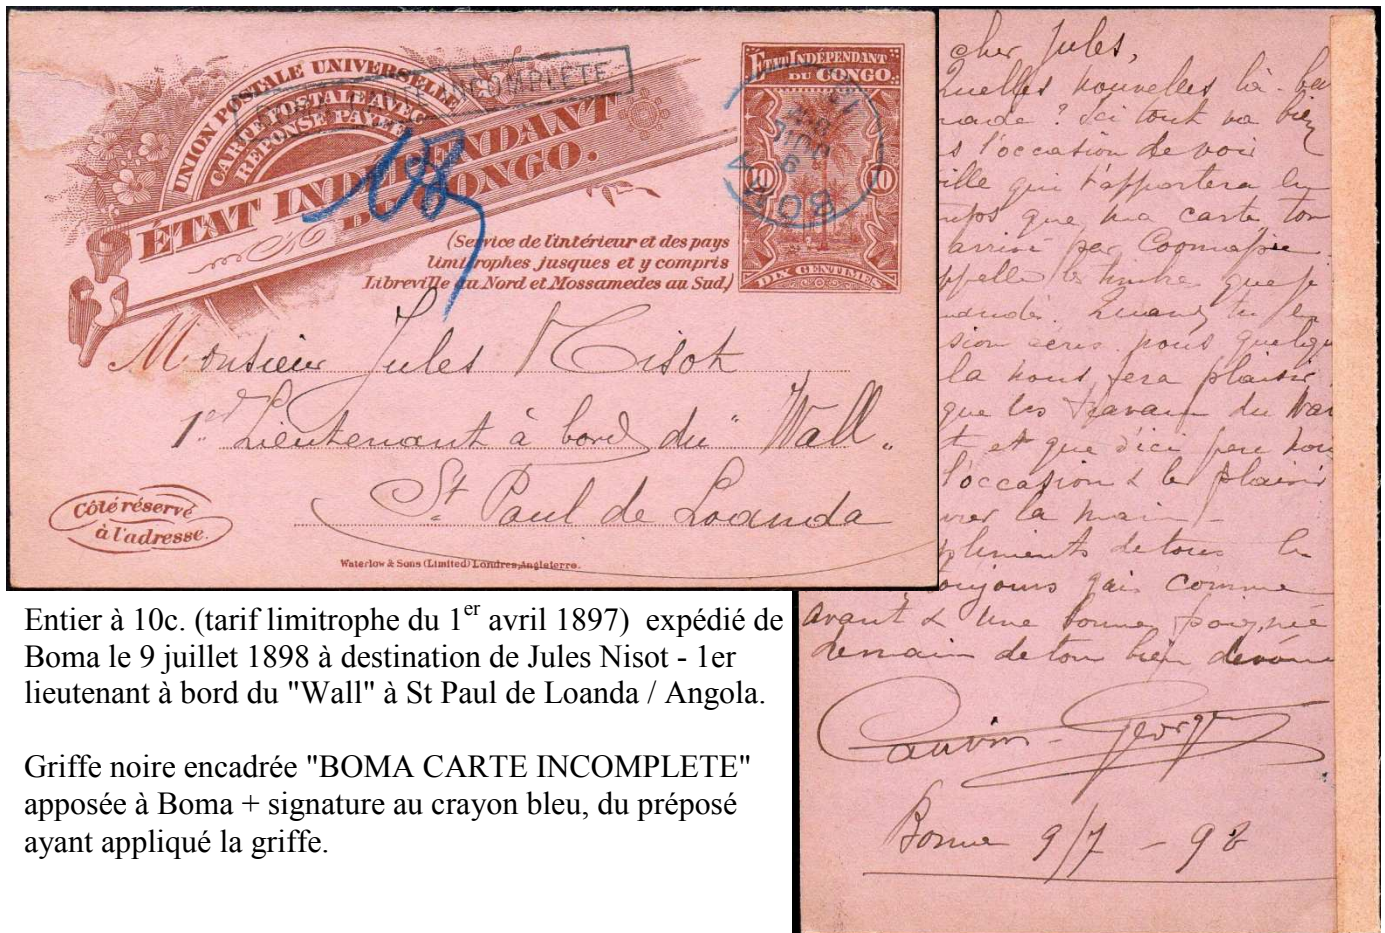 UNION POSTALE UNIVERSELLE
CARTE POSTALE AVEC
REPONSE PAYÉE
INCOMPLETE
ÉTAT INDÉPENDANT
DU CONGO.
(Service de l'intérieur et des pays
limitrophes jusques et y compris
Libreville au Nord et Mossamedes au Sud)
ÉTAT INDÉPENDANT
DU CONGO
10 10
DIX CENTIMES
BOMA
9
JUIL
Monsieur Jules Nisot
1er Lieutenant à bord du "Wall"
St Paul de Loanda
Côté réservé
à l'adresse.
Waterlow & Sons (Limited) Londres, Angleterre.
cher Jules,
Quelles nouvelles là-bas
rade? Ici tout va bien
s l'occasion de voir
ville qui t'apportera
que ma carte, ton
arrivé par
ppelle les timbre que je
Quand tu
sion écris nous quelque
la nous fera plaisir
que les travaux du
t et que d'ici peu nous
l'occasion & le plaisir
rer la main -
pliments de tous
toujours gai comme
avant & une bonne poignée
de main de ton bien dévoué
Cauvin - Georges
Boma 9/7 - 98
Entier à 10c. (tarif limitrophe du 1er avril 1897) expédié de
Boma le 9 juillet 1898 à destination de Jules Nisot - 1er
lieutenant à bord du "Wall" à St Paul de Loanda / Angola.
Griffe noire encadrée "BOMA CARTE INCOMPLETE"
apposée à Boma + signature au crayon bleu, du préposé
ayant appliqué la griffe.